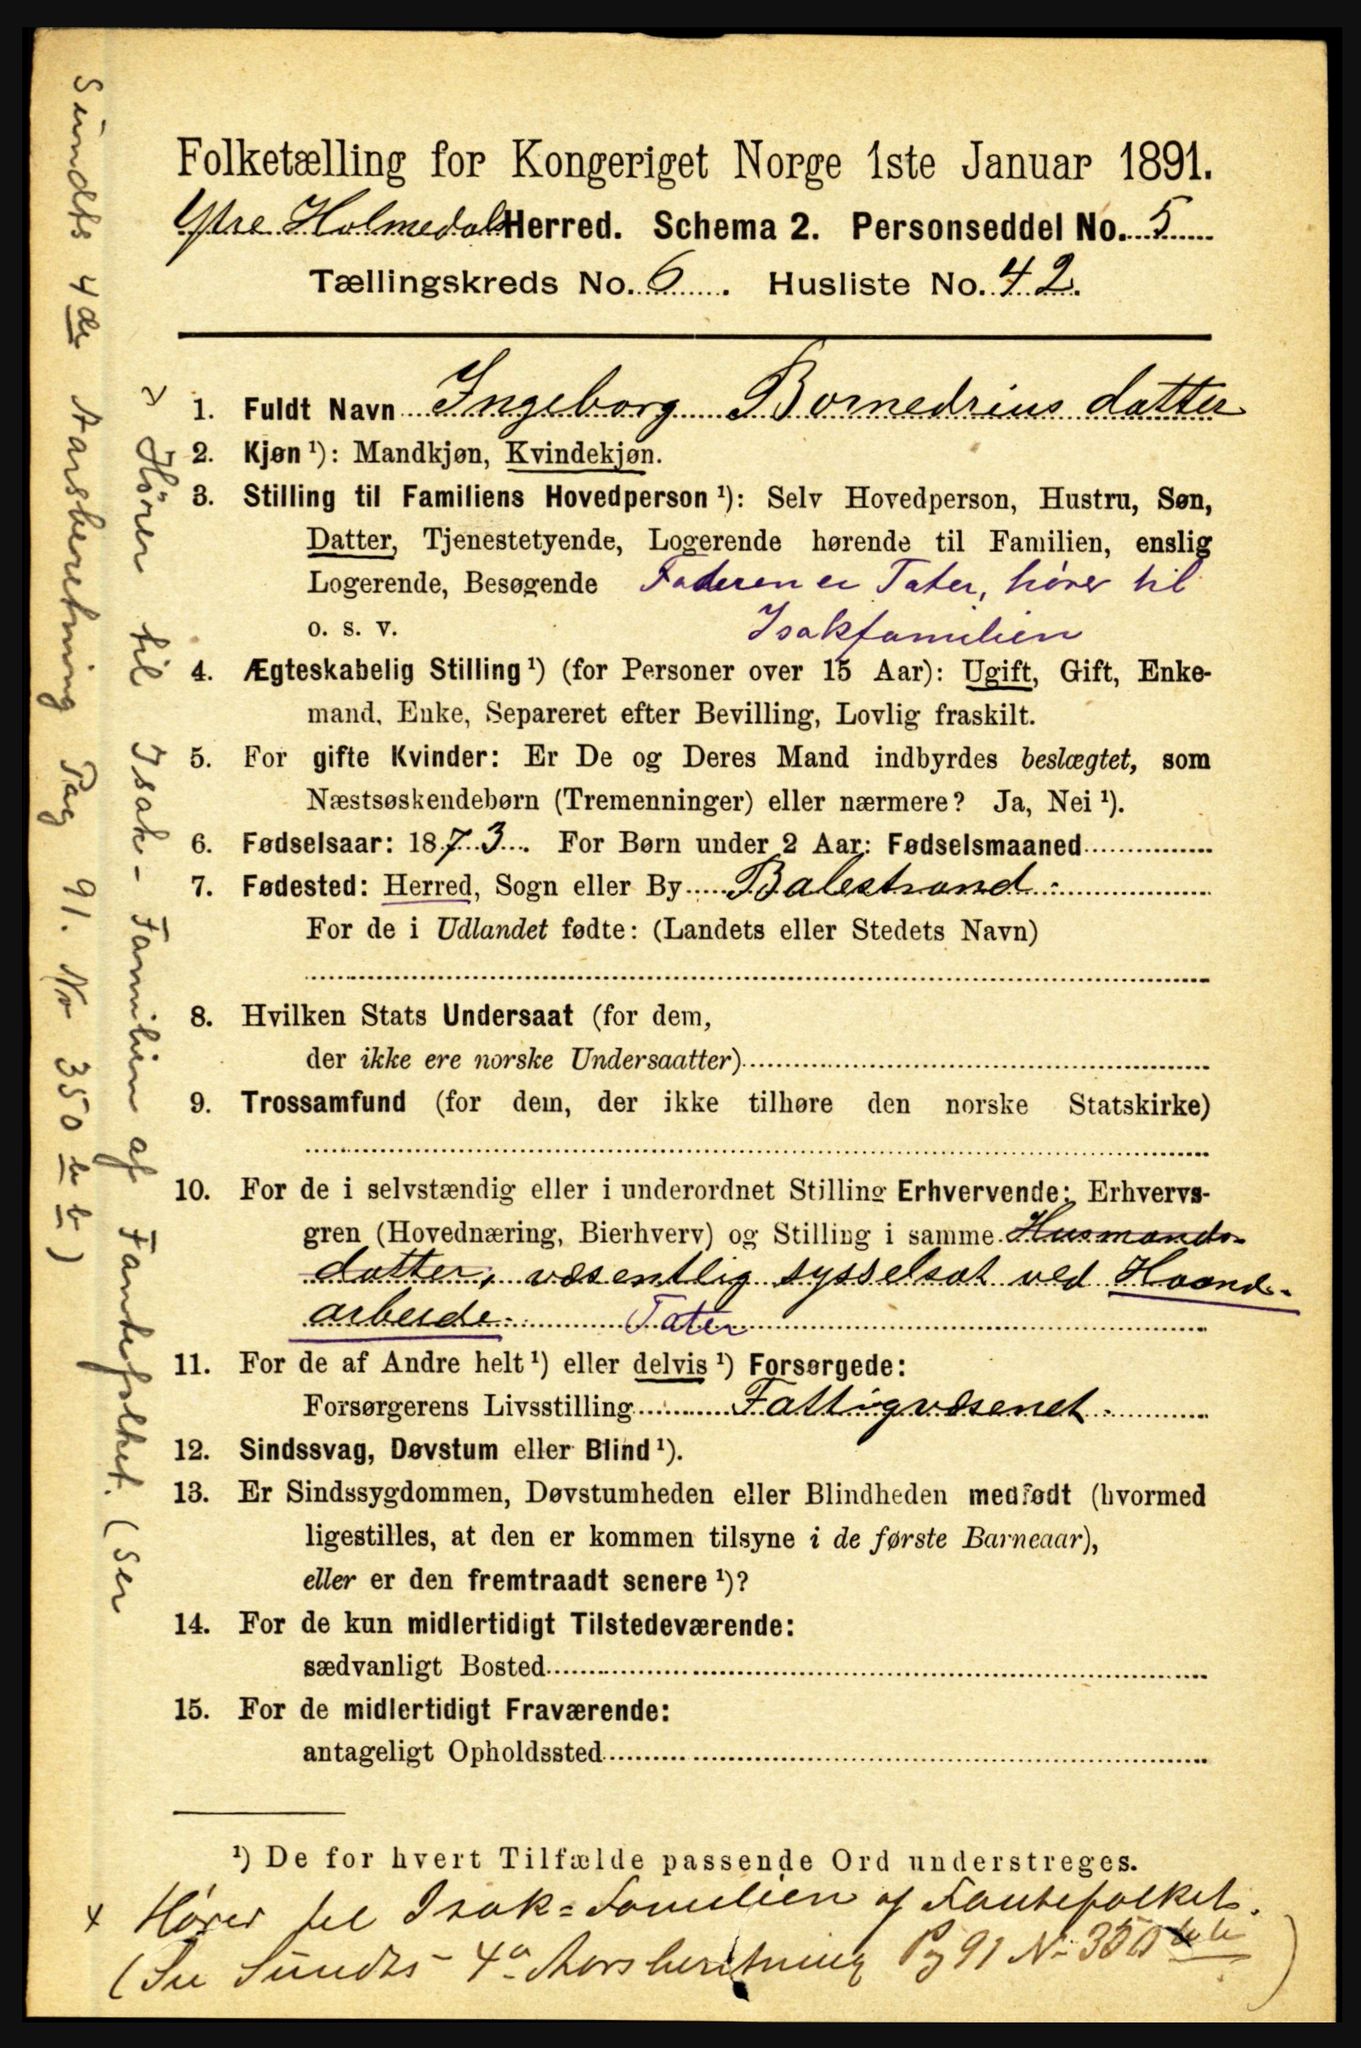 Folketælling for Kongeriget Norge 1ste Januar 1891.
Ytre Holmedals Herred. Schema 2. Personseddel No. 5
Tællingskreds No. 6. Husliste No. 42.
1. Fuldt Navn Ingeborg Bornedrius datter
2. Kjøn ¹): Mandkjøn, Kvindekjøn.
3. Stilling til Familiens Hovedperson ¹): Selv Hovedperson, Hustru, Søn,
Datter, Tjenestetyende, Logerende hørende til Familien, enslig
Logerende, Besøgende Faderen er Tater, hører til
o. s. v. Isakfamilien
4. Ægteskabelig Stilling ¹) (for Personer over 15 Aar): Ugift, Gift, Enke-
mand, Enke, Separeret efter Bevilling, Lovlig fraskilt.
5. For gifte Kvinder: Er De og Deres Mand indbyrdes beslægtet, som
Næstsøskendebørn (Tremenninger) eller nærmere? Ja, Nei ¹).
6. Fødselsaar: 1873. For Børn under 2 Aar: Fødselsmaaned
7. Fødested: Herred, Sogn eller By Balestrand.
For de i Udlandet fødte: (Landets eller Stedets Navn)
8. Hvilken Stats Undersaat (for dem,
der ikke ere norske Undersaatter)
9. Trossamfund (for dem, der ikke tilhøre den norske Statskirke)
10. For de i selvstændig eller i underordnet Stilling Erhvervende: Erhvervs-
gren (Hovednæring, Bierhverv) og Stilling i samme Husmands-
datter, væsentlig sysselsat ved Haand-
arbeide. Tater
11. For de af Andre helt ¹) eller delvis ¹) Forsørgede:
Forsørgerens Livsstilling Fattigvæsenet.
12. Sindssvag, Døvstum eller Blind ¹).
13. Er Sindssygdommen, Døvstumheden eller Blindheden medfødt (hvormed
ligestilles, at den er kommen tilsyne i de første Barneaar),
eller er den fremtraadt senere ¹)?
14. For de kun midlertidigt Tilstedeværende:
sædvanligt Bosted
15. For de midlertidigt Fraværende:
antageligt Opholdssted
¹) De for hvert Tilfælde passende Ord understreges.
x Hører til Isak-Familien af Fantefolket.
(Se Sundts 4de Aarsberetning Pg 91 Nr 350 b b)
x Hører til Isak-Familien af Fantefolket. (Ser
Sundts 4de Aarsberetning Pag 91. Nr 350 b b)